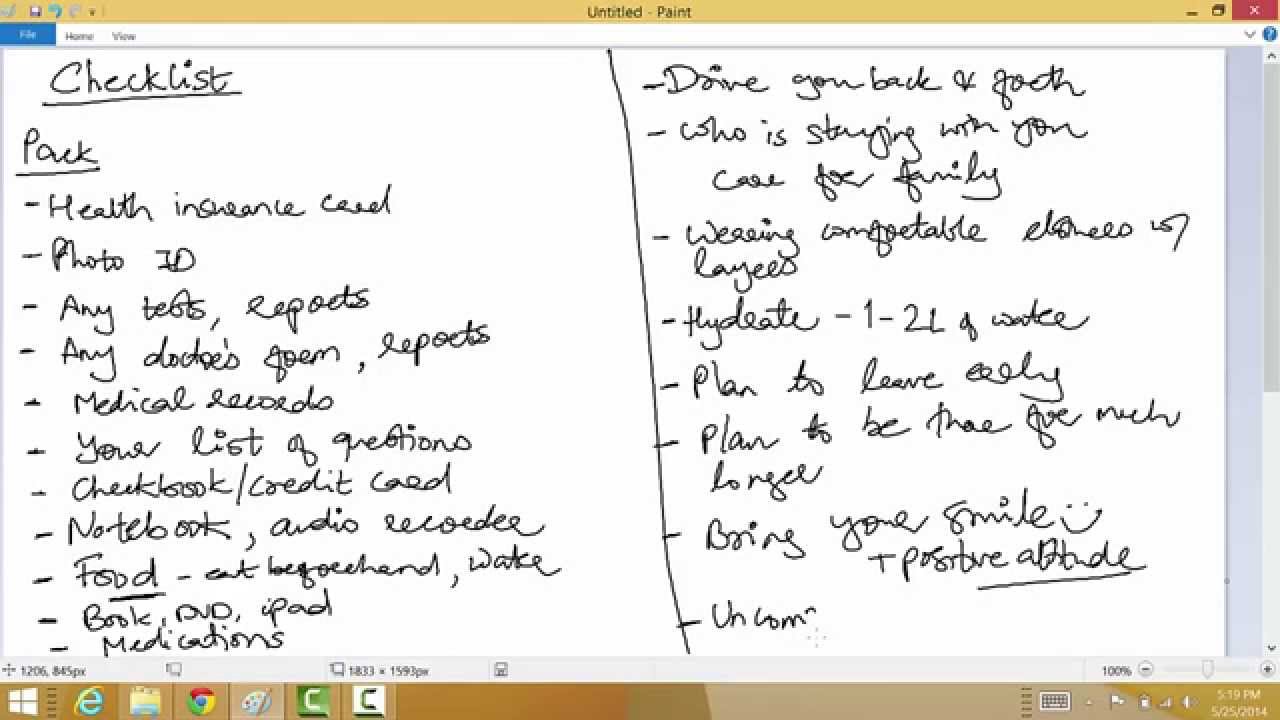 Untitled - Paint
File Home View
Checklist
Pack
- Health insurance card
- Photo ID
- Any tests, reports
- Any doctor's form, reports
- Medical records
- Your list of questions
- Checkbook/credit card
- Notebook, audio recorder
- Food - eat beforehand, water
- Book, DVD, ipad
- Medications
- Drive you back & forth
- Who is staying with you
care for family
- Wearing comfortable clothes w/
layers
- Hydrate - 1-2L of water
- Plan to leave early
- Plan to be there for much
longer
- Bring your smile
+ positive attitude
- Uncom
1206, 845px
1833 × 1593px
100%
5:19 PM
5/25/2014